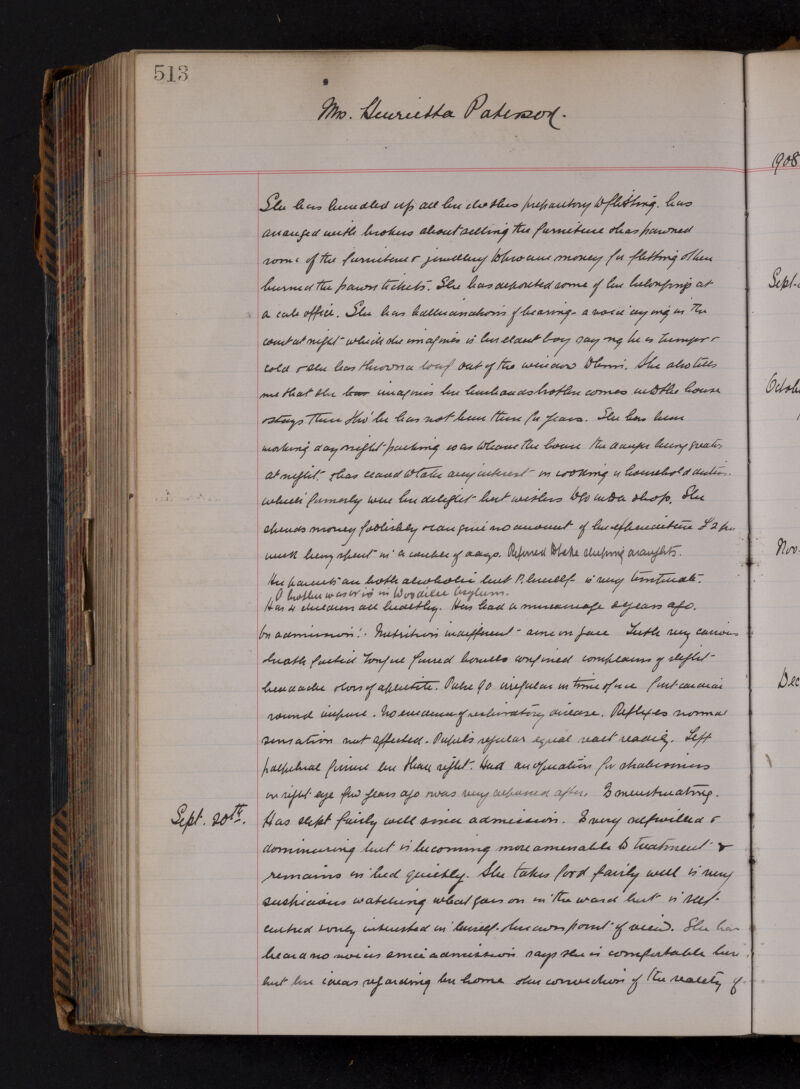 513
Mrs. Henrietta Paterson.
She has bundled up all her clothes preparatory to flitting. has
arranged with brokers about selling the furniture & has pawned
some of the furniture & jewellery to procure money for flitting & then
burned the pawn tickets. She has deposited some of her belongings at
a cab office. She has hallucinations of hearing - a voice crying in the
court at night which she imagines is her eldest boy saying he is hungry &
cold & she has thrown a loaf out of the window to him. She also tells
me that she imagines her husbands brother comes into the house
& stays there tho' he has not been there for years. She has been
working day & night packing so as to leave the house the danger being greater
at night & has ceased to take any interest in cooking or household duties
which formerly were her delight but wishes to go into a shop. She
spends money foolishly & can give no account of her expenditure £2 per
week being spent in a couple of days. Refused to take sleeping draughts.
Her parents are both alcoholic but P. herself is very temperate.
A brother was or is in Woodilee Asylum.
Has 4 children all healthy. Has had a miscarriage years ago.
On admission:. Nutrition indifferent - acne on face. Teeth very carious
breath foetid tongue furred bowels confined complains of slight
headache & loss of appetite. Pulse 90 irregular in time & force first cardiac
sound impure. No evidence of respiratory disease. Reflexes normal
sensation not affected. Pupils regular equal react readily. Left
palpebral fissure less than right. Had an operation for strabismus
on right eye few years ago & was very depressed after. Is menstruating.
Sept. 20th. Has slept fairly well since admission. Is very selfwilled &
domineering but is becoming more amenable to treatment &
remains in bed quietly. She takes food fairly well is very
suspicious watching what goes on in the ward but is self-
centred & only interested in herself & her own point of view. She has
heard no voices since admission says she is comfortable here
but her ideas regarding her home & her conviction of the reality of
1908
Sept.
Nov.
Dec